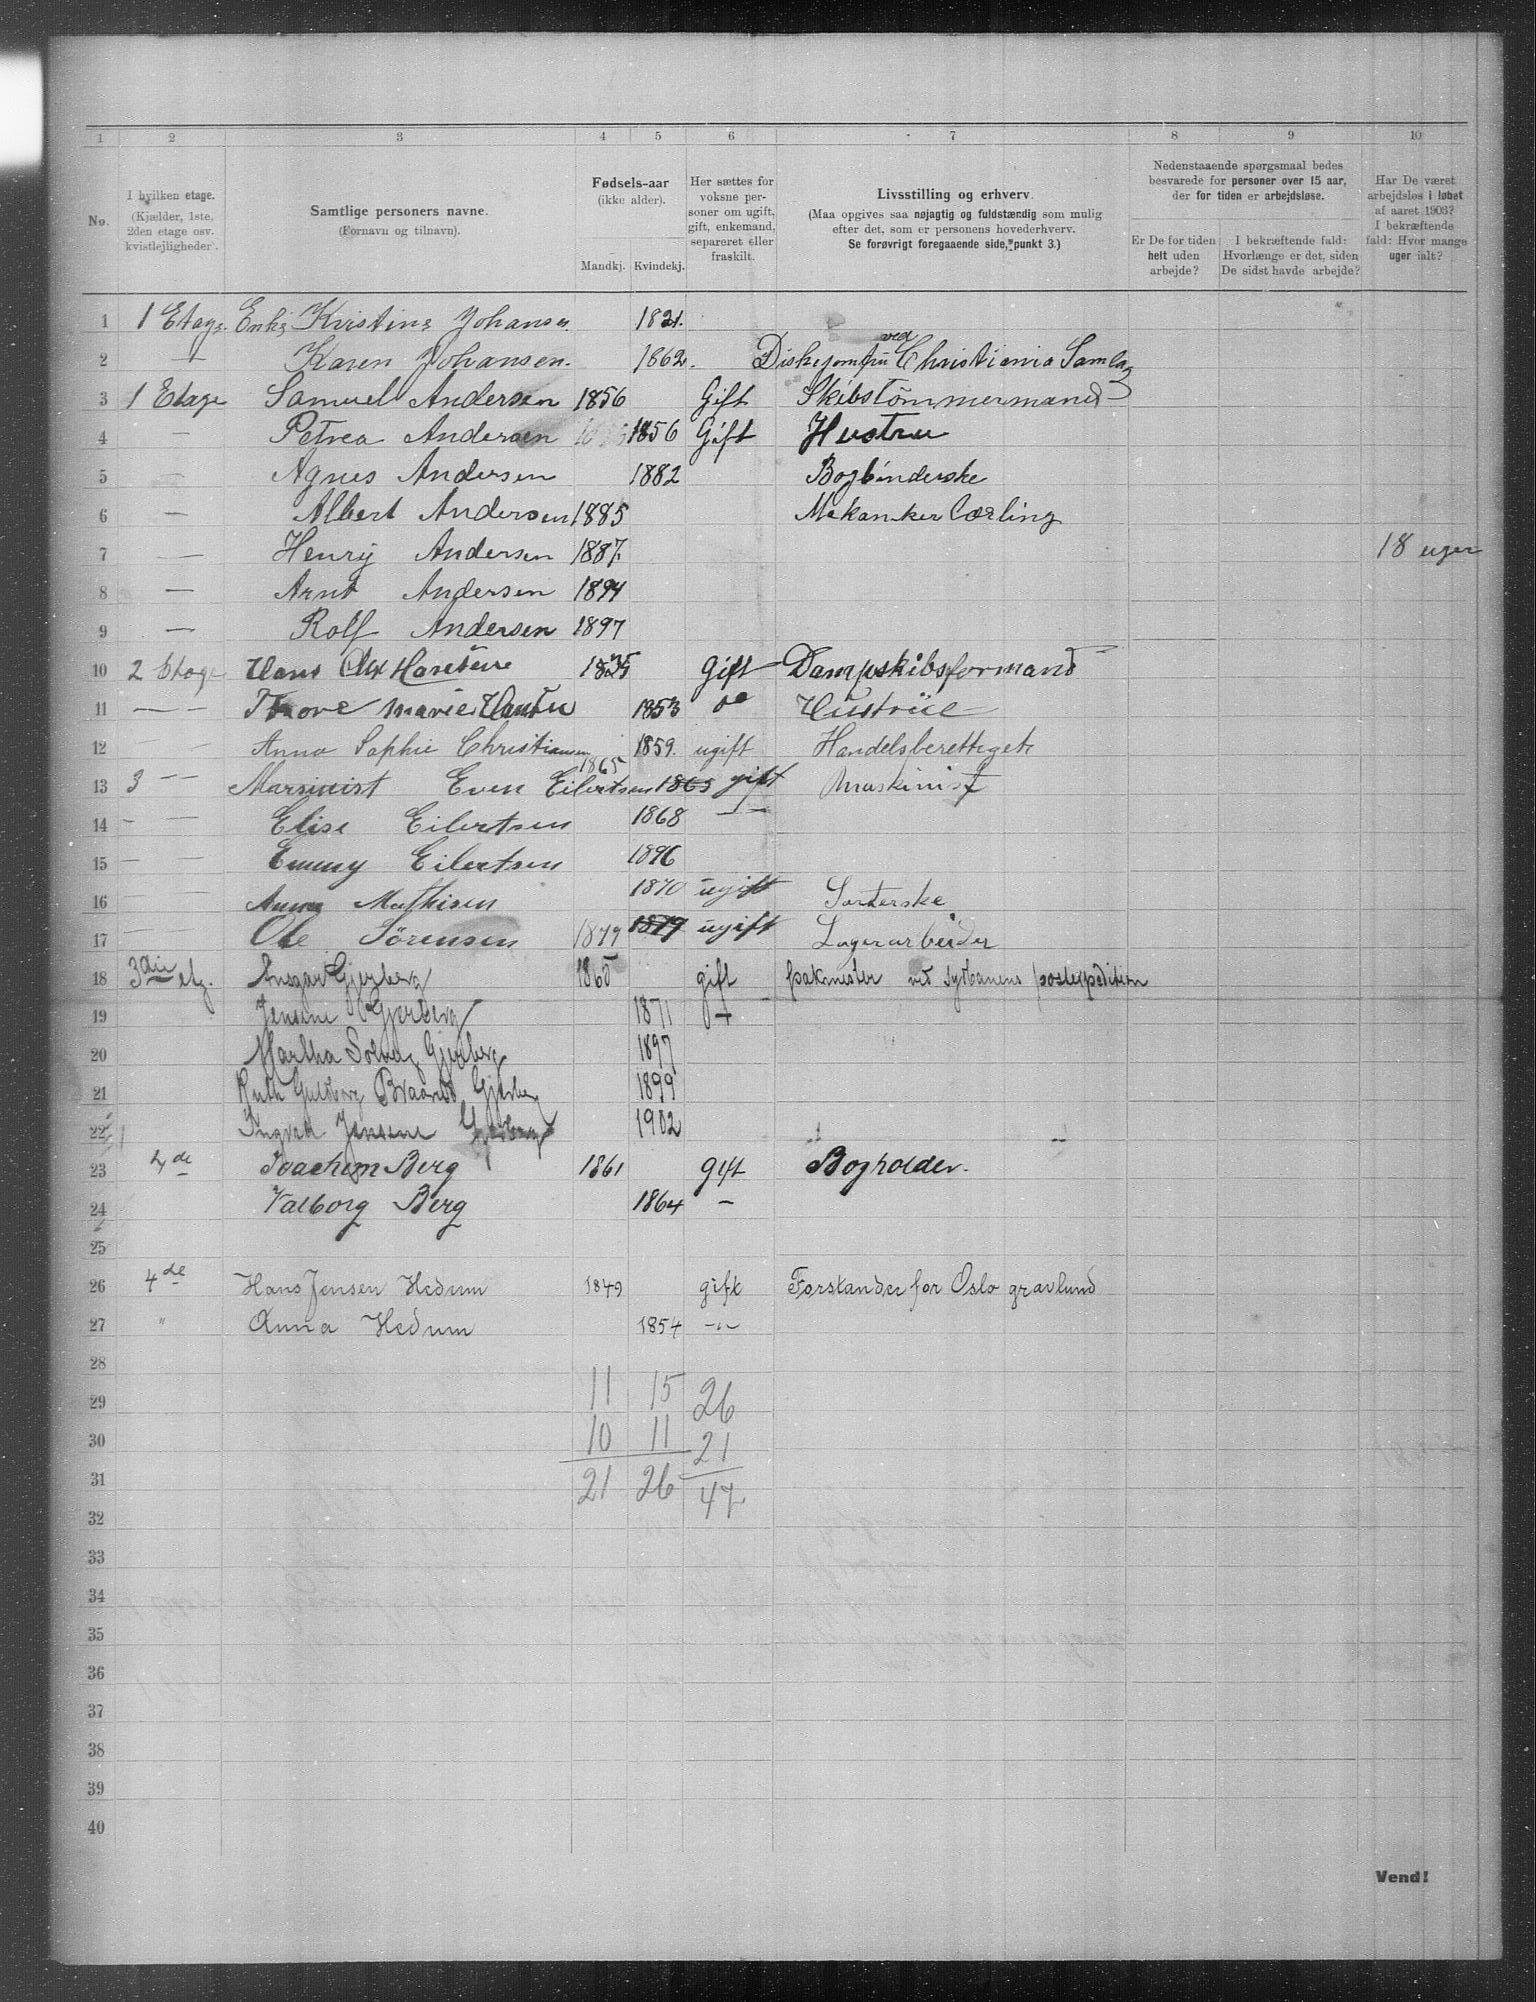 1 2 3 4 5 6 7 8 9 10
No.
I hvilken etage.
(Kjælder, 1ste,
2den etage osv.
kvistlejligheder).
Samtlige personers navne.
(Fornavn og tilnavn).
Fødsels-aar
(ikke alder).
Mandkj. Kvindekj.
Her sættes for
voksne per-
soner om ugift,
gift, enkemand,
separeret eller
fraskilt.
Livsstilling og erhverv.
(Maa opgives saa nøjagtig og fuldstændig som mulig
efter det, som er personens hovederhverv.
Se forøvrigt foregaaende side, punkt 3.)
Nedenstaaende spørgsmaal bedes
besvarede for personer over 15 aar,
der for tiden er arbejdsløse.
Er De for tiden
helt uden
arbejde?
I bekræftende fald:
Hvorlænge er det, siden
De sidst havde arbejde?
Har De været
arbejdsløs i løbet
af aaret 1903?
I bekræftende
fald: Hvor mange
uger ialt?
1 1 Etage Enke Kristine Johansen 1821.
2 — Karen Johansen. 1862. Diskejomfru ved Christiania Samlag
3 1 Etage Samuel Andersen 1856 Gift Skibstømmermand
4 — Petrea Andersen 1856 Gift Hustru
5 — Agnes Andersen 1882 Bogbinderske
6 — Albert Andersen 1885 Mekaniker Lærling
7 — Henry Andersen 1887. 18 uger
8 — Arnt Andersen 1894
9 — Rolf Andersen 1897
10 2 Etage Hans Chr Hansen gift Dampskibsformand
11 — — Marie Hansen 1853 do Hustrue
12 — — Anna Sophie Christiansen 1859. ugift Handelsberettiget
13 3 — — Marsinist Even Eilertsen 1865 1865 gift Maskinist
14 — — Elise Eilertsen 1868 — —
15 — — Emmy Eilertsen 1896
16 — Anna Mathisen 1870 ugift Sorterske
17 — — Ole Sørensen 1879 1879 ugift Lagerarbeider
18 3die etg. Ansgar Gjerberg 1865 gift pakmester ved Sydbanens postexpedition
19 Jensine Gjerberg 1871
20 Martha Solveig Gjerberg 1897
21 Ruth Guldborg Gjerberg 1899
22 Jensine Gjerberg 1902
23 4de Joachim Berg 1861 gift Bogholder.
24 Valborg Berg 1864 —
25
26 4de Hans Jensen Hedum 1849 gift Forstander for Oslo gravlund
27 " Anna Hedum 1854 —"—
28
29 11 15 26
30 10 11 21
31 21 26 47
32
33
34
35
36
37
38
39
40
Vend!